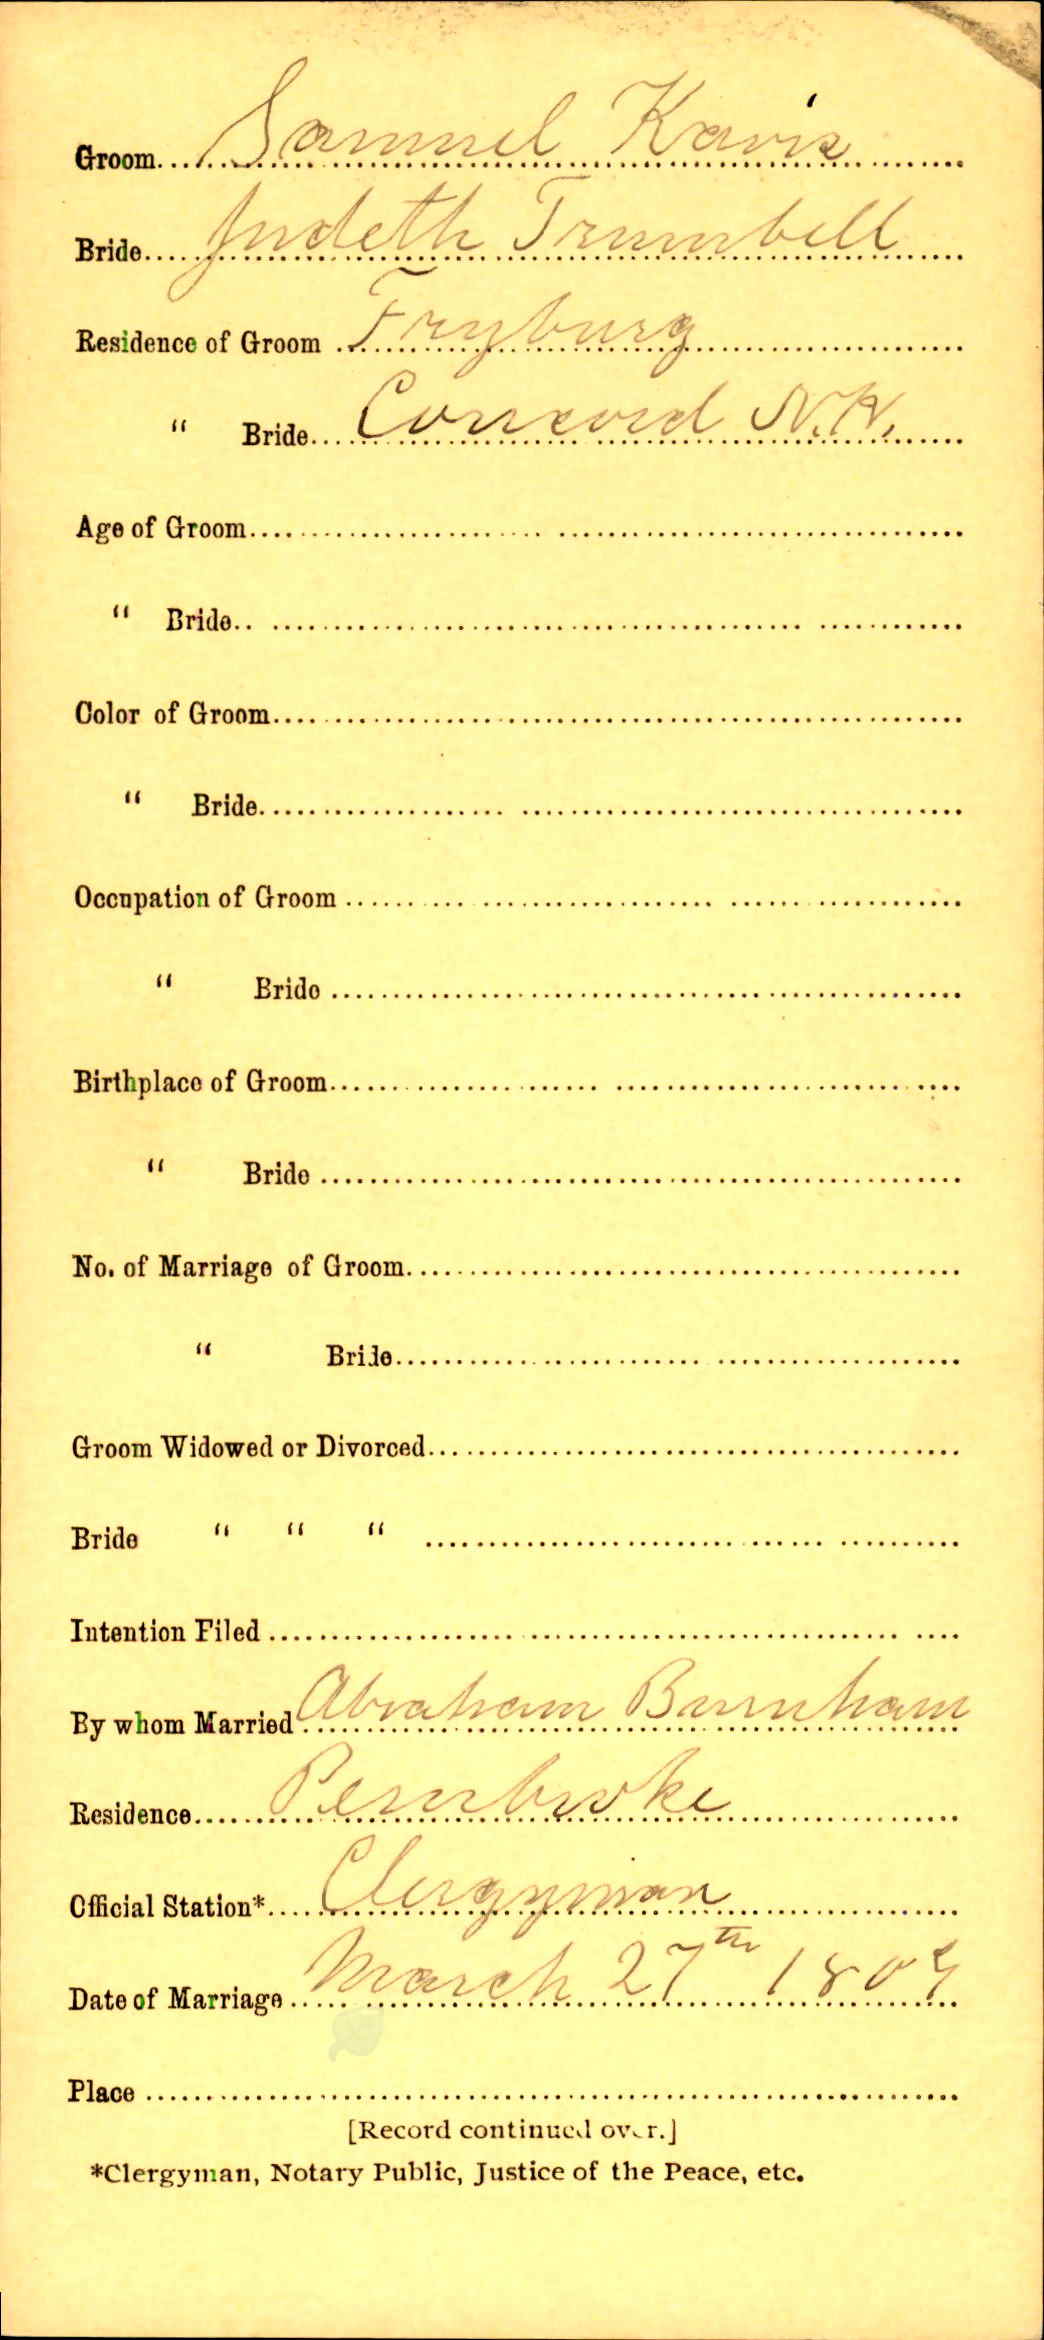 Groom Samuel Kavis
Bride Judeth Trumbell
Residence of Groom Fryburg
" Bride Concord N.H.
Age of Groom
" Bride
Color of Groom
" Bride
Occupation of Groom
" Bride
Birthplace of Groom
" Bride
No. of Marriage of Groom
" Bride
Groom Widowed or Divorced
Bride " " "
Intention Filed
By whom Married Abraham Burnham
Residence Pembroke
Official Station* Clergyman
Date of Marriage March 27th 1809
Place
[Record continued over.]
*Clergyman, Notary Public, Justice of the Peace, etc.